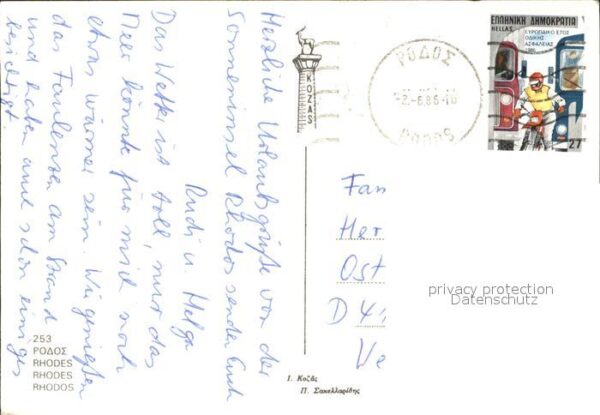 Herzliche Urlaubsgrüße von der
Sonneninsel Rhodos senden Euch
Rudi u Helga
Das Wetter ist toll, nur das
Meer könnte für mich noch
etwas wärmer sein. Wir genießen
das Faulenzen am Strand
und haben auch schon einiges
besichtigt.
253
ΡΟΔΟΣ
RHODES
RHODES
RHODOS
KOZAS
ΡΟΔΟΣ
-2.-6.86-16
RODOS
ΕΛΛΗΝΙΚΗ ΔΗΜΟΚΡΑΤΙΑ
HELLAS
ΕΥΡΩΠΑΪΚΟ ΕΤΟΣ
ΟΔΙΚΗΣ
ΑΣΦΑΛΕΙΑΣ
27
Fam
Her
Ost
D 41
Ve
privacy protection
Datenschutz
Ι. Κοζᾶς
Π. Σακελλαρίδης